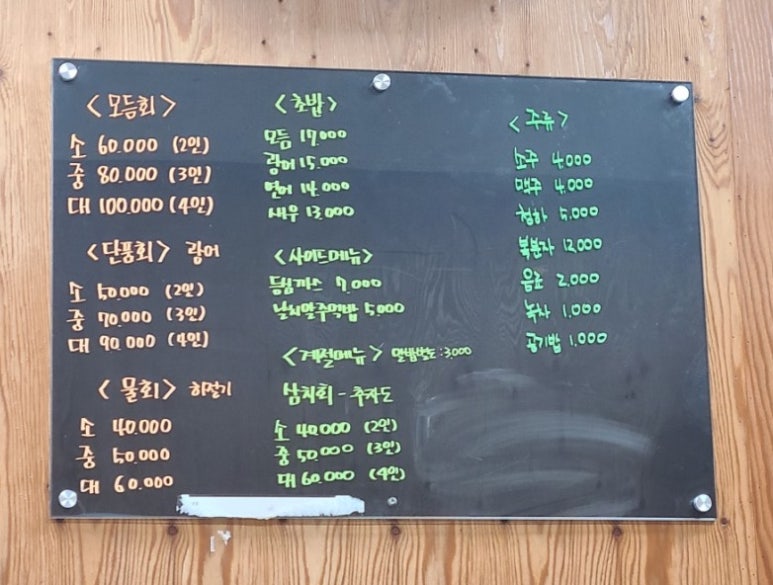 <모듬회>
소 60.000 (2인)
중 80.000 (3인)
대 100.000 (4인)
<단품회> 광어
소 50.000 (2인)
중 70.000 (3인)
대 90.000 (4인)
<물회> 하절기
소 40.000
중 50.000
대 60.000
<초밥>
모듬 17.000
광어 15.000
연어 14.000
새우 13.000
<사이드메뉴>
등심까스 7.000
날치알주먹밥 5.000
<계절메뉴> 알밥별도:3,000
삼치회 - 추자도
소 40.000 (2인)
중 50.000 (3인)
대 60.000 (4인)
<주류>
소주 4.000
맥주 4.000
청하 5.000
복분자 12.000
음료 2.000
녹차 1.000
공기밥 1.000